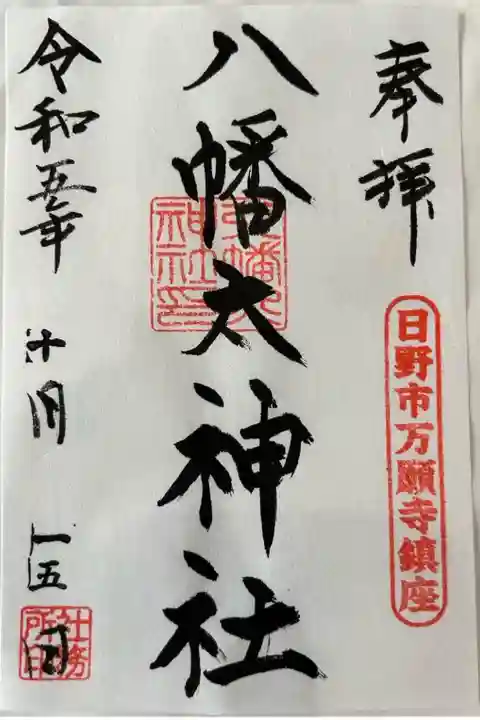 奉拝
日野市万願寺鎮座
八幡大神社
令和五年 十月 一五日
社務所印